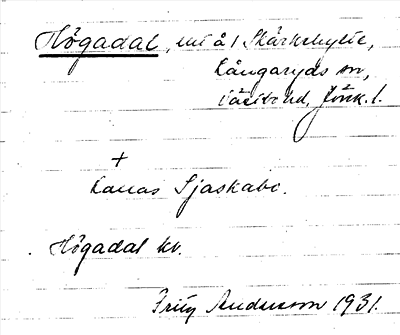 Högadal, int å 1 Skärkehylte,
Långaryds sn,
Västbo hd, Jönk. l.
+
Lanas Sjaskabo.
Högadal kv.
Fritz Andersson 1931.